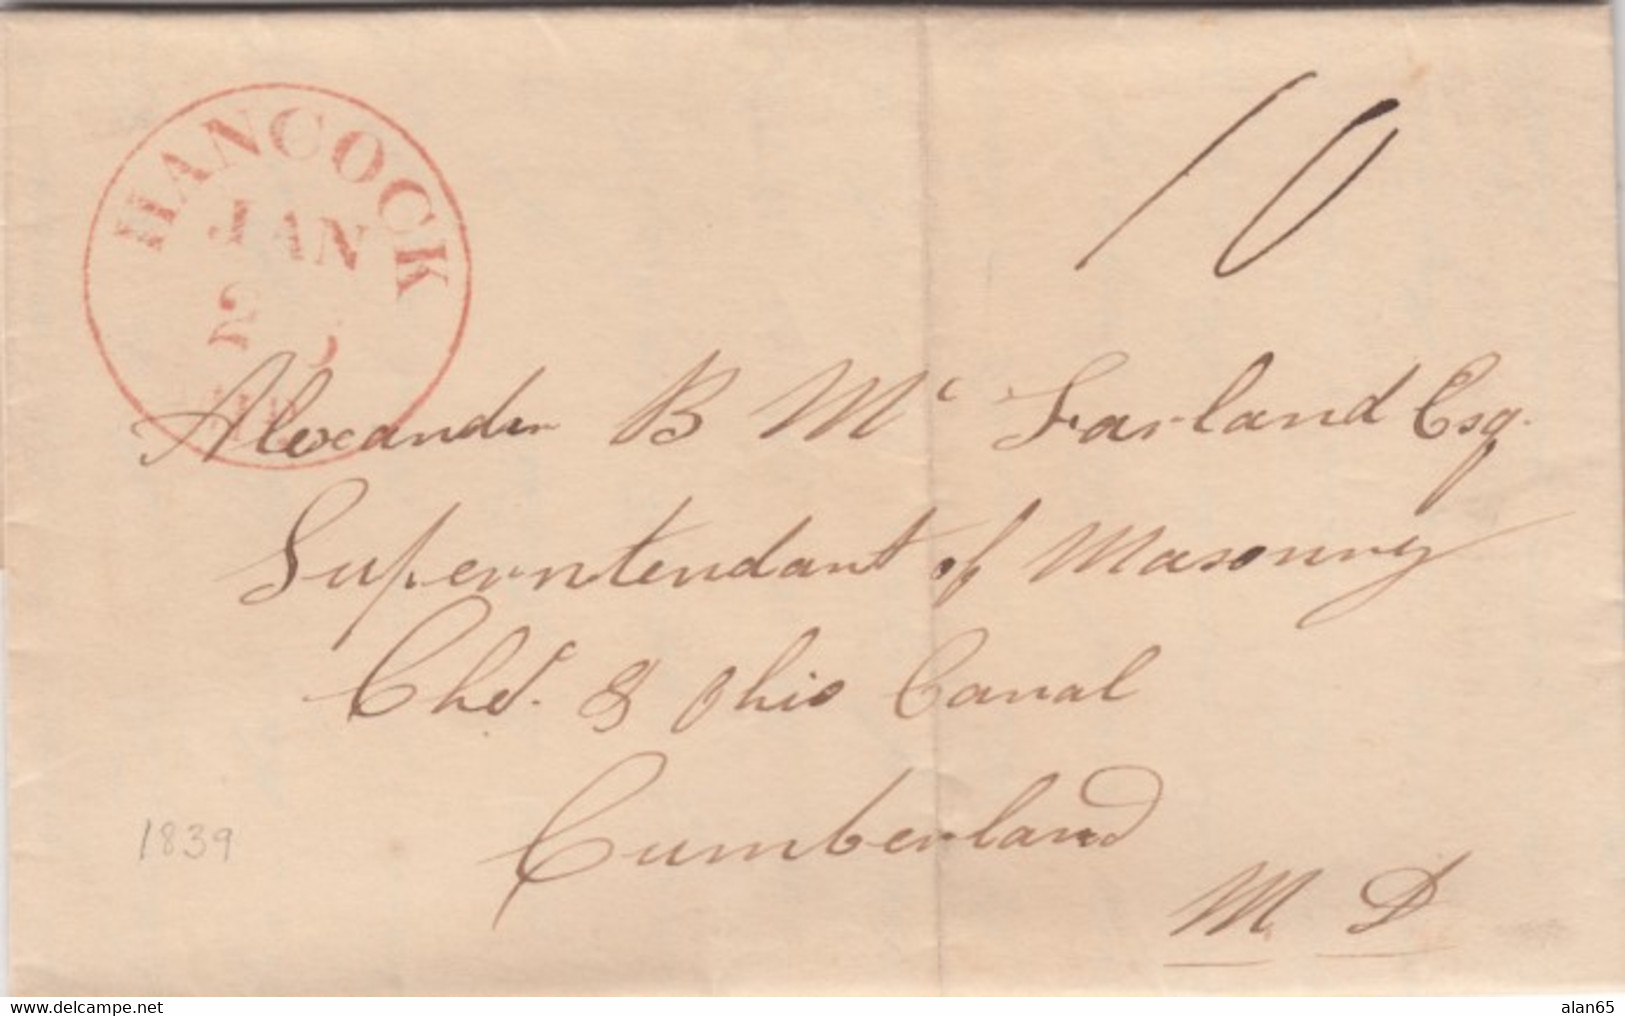 HANCOCK
JAN
2
10
Alexander B Mc Farland Esq.
Superntendant of Masonry
Ches. & Ohio Canal
Cumberland
M D
1839
www.delcampe.net
alan65